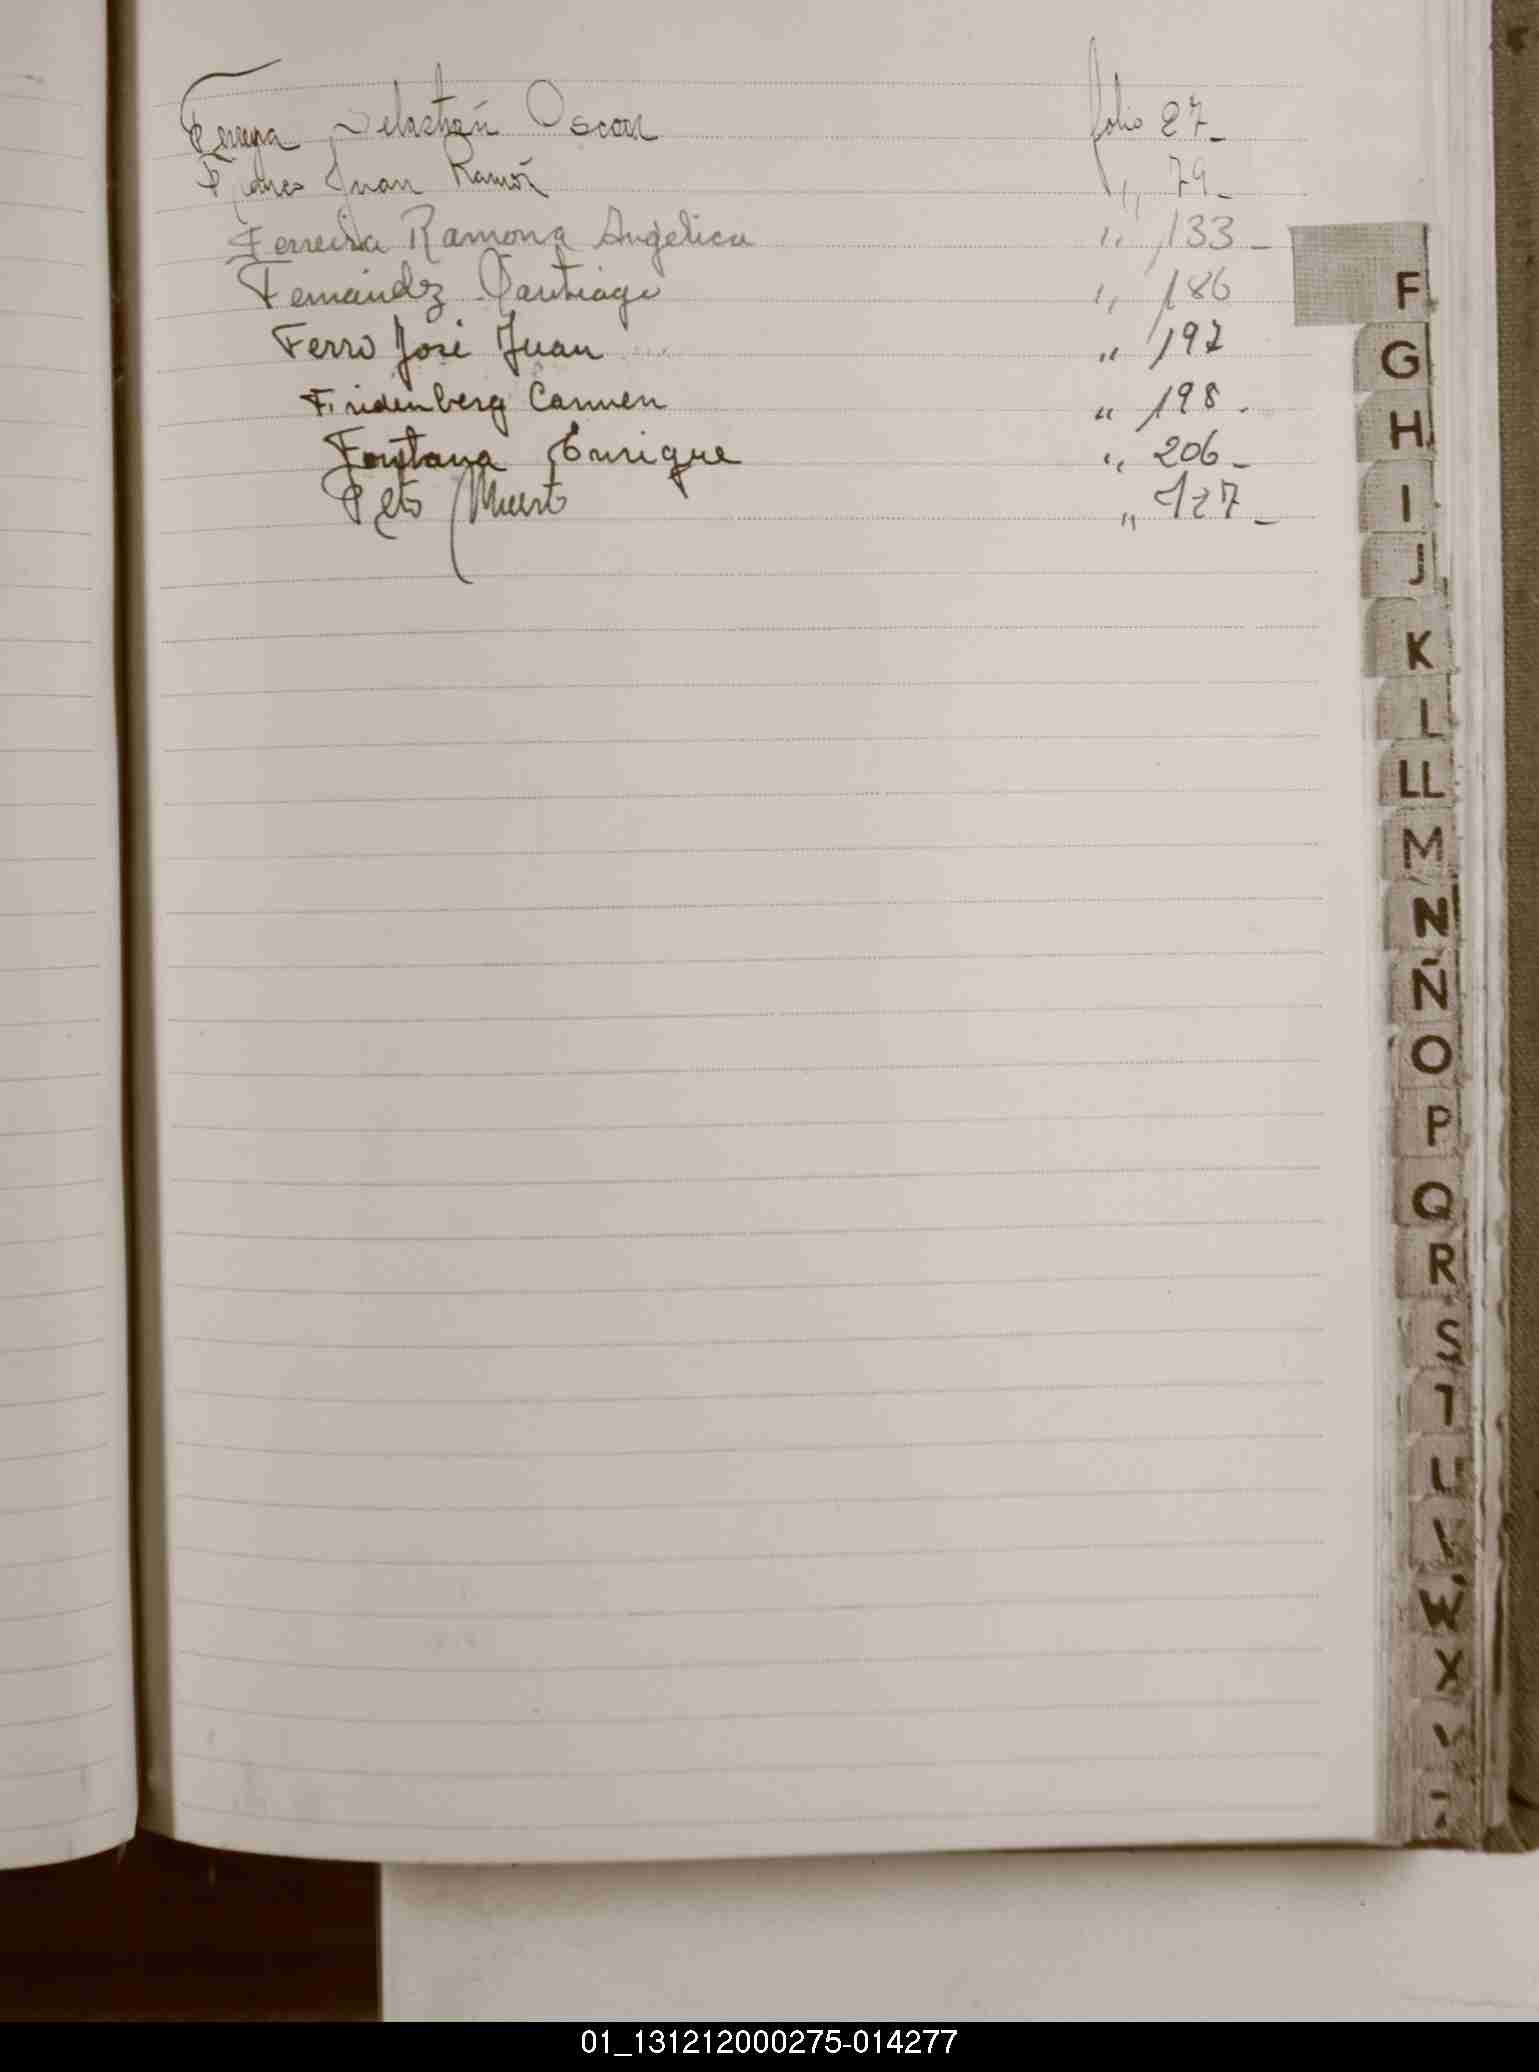 Sebastián Oscar folio 27-
Juan Ramón " 79-
Ferreira Ramona Angélica " 133-
Fernández Santiago " 186
Ferro José Juan " 197
Fridenberg Carmen " 198.
Fontana Enrique " 206-
Feto Muerto " 127-
F
G
H
I
J
K
L
LL
M
N
Ñ
O
P
Q
R
S
T
U
V
W
X
01_131212000275-014277